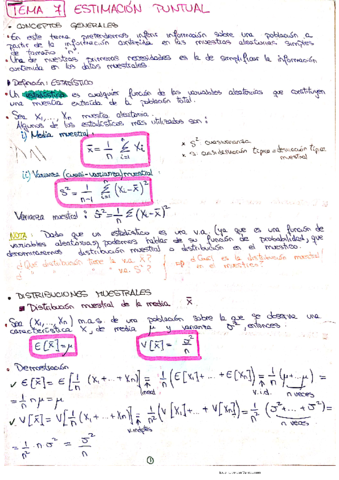 TEMA 7 ESTIMACIÓN PUNTUAL
• CONCEPTOS GENERALES
• En este tema pretendemos inferir información sobre una población a
partir de la información contenida en las muestras aleatorias simples
de tamaño n.
• Una de nuestras primeras necesidades es la de simplificar la información
contenida en los datos muestrales
Definición: ESTADÍSTICO
• Un estadístico es cualquier función de las variables aleatorias que constituyen
una muestra extraída de la población total.
• Sea X₁,..., Xₙ muestra aleatoria.
Algunos de los estadísticos más utilizados son:
i) Media muestral
x̄ = 1/n Σᵢ₌₁ⁿ Xᵢ
* S² cuasivarianza
* S cuasidesviación típica o desviación típica muestral
ii) Varianza (cuasi-varianza) muestral
S² = 1/(n-1) Σᵢ₌₁ⁿ (Xᵢ - X̄)²
Varianza muestral: S² = 1/n Σ (Xᵢ - X̄)²
NOTA: Dado que un estadístico es una v.a. (ya que es una función de
variables aleatorias), podemos hablar de su función de probabilidad, que
denominaremos distribución muestral o distribución en el muestreo.
¿Qué distribución tiene la v.a. X̄?
¿Cuál es la distribución muestral
en el muestreo?
• DISTRIBUCIONES MUESTRALES
Distribución muestral de la media X̄.
• Sea (X₁,..., Xₙ) m.a.s. de una población sobre la que se observa una
característica X, de media μ y varianza σ², entonces
E[X̄] = μ V[X̄] = σ²/n
• Demostración
✓ E[X̄] = E[1/n (X₁ + ... + Xₙ)] = 1/n (E[X₁] + ... + E[Xₙ]) = 1/n (μ + ... + μ) =
v.i.d. n veces
= 1/n n μ = μ
✓ V[X̄] = V[1/n (X₁ + ... + Xₙ)] = 1/n² (V[X₁] + ... + V[Xₙ]) = 1/n² (σ² + ... + σ²) =
v.i.d. n veces
= 1/n² n σ² = σ²/n
①